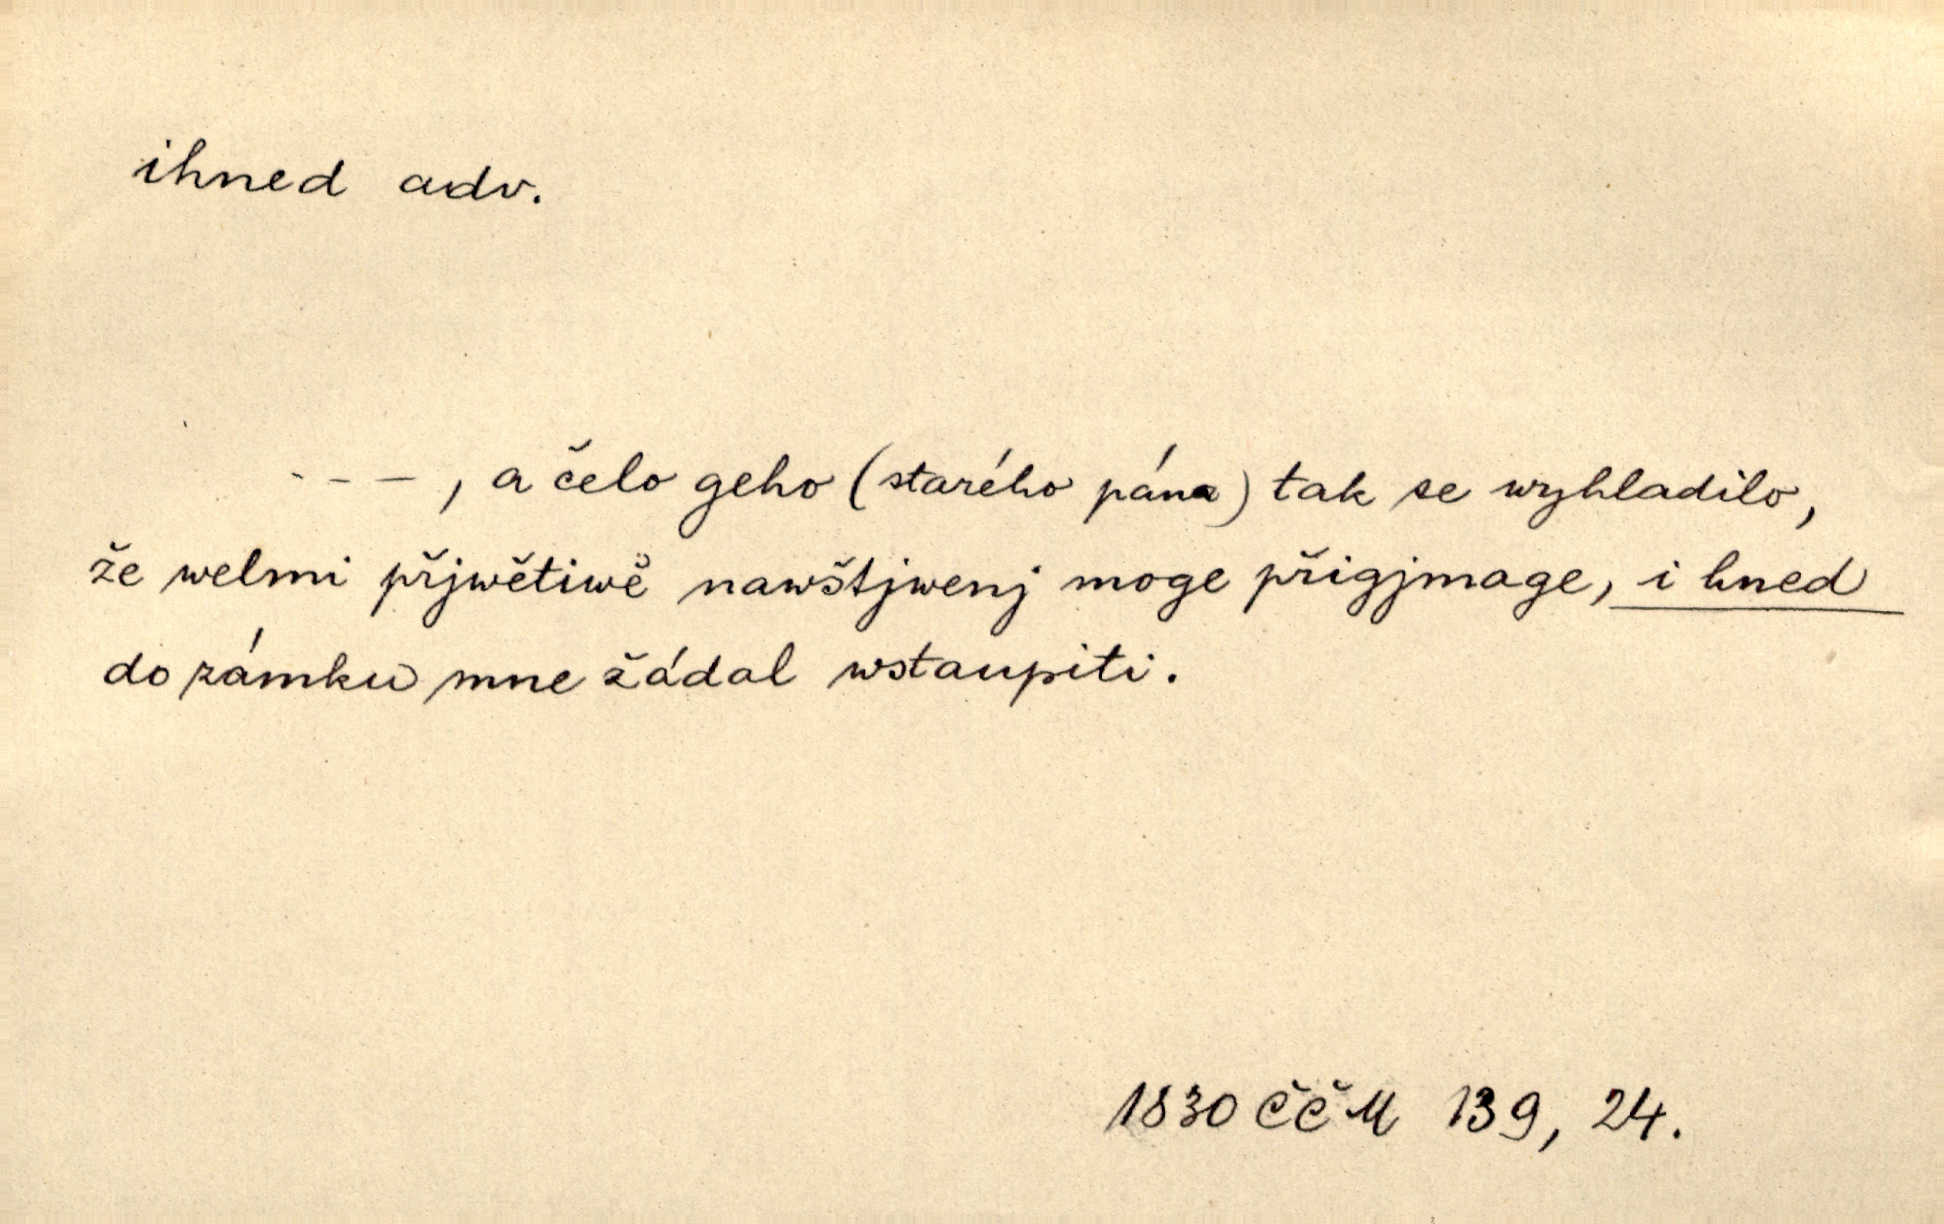 ihned adv.
- - - , a čelo geho (starého pána) tak se wyhladilo,
že welmi přjwětiwě nawštjwenj moge přigjmage, i hned
do zámku mne žádal wstaupiti.
1830 ČČM 139, 24.